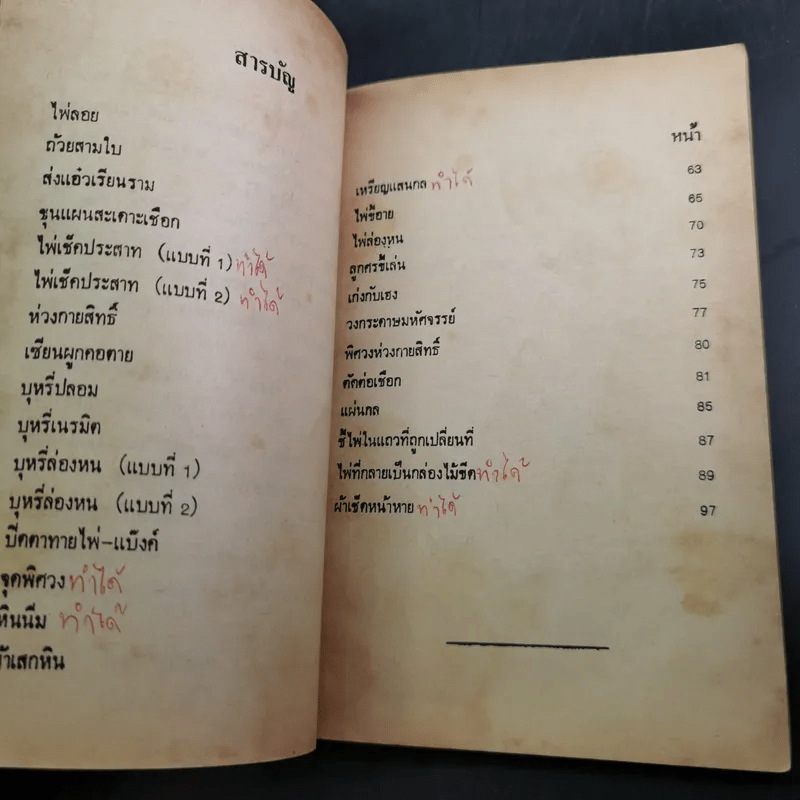 สารบัญ
ไพ่ลอย
ถ้วยสามใบ
ส่งแอ๋วเรียนราม
ขุนแผนสะเดาะเชือก
ไพ่เช็คประสาท (แบบที่ 1) ทำได้
ไพ่เช็คประสาท (แบบที่ 2) ทำได้
ห่วงกายสิทธิ์
เซียนผูกคอตาย
บุหรี่ปลอม
บุหรี่เนรมิต
บุหรี่ล่องหน (แบบที่ 1)
บุหรี่ล่องหน (แบบที่ 2)
ปิดตาทายไพ่-แบ๊งค์
จุดพิศวง ทำได้
หินนึม ทำได้
น้ำเสกหิน
หน้า
เหรียญแสนกล ทำได้ 63
ไพ่ขี้อาย 65
ไพ่ล่องหน 70
ลูกศรขี้เล่น 73
เก่งกับเฮง 75
วงกระดาษมหัศจรรย์ 77
พิศวงห่วงกายสิทธิ์ 80
ตัดต่อเชือก 81
แผ่นกล 85
ชี้ไพ่ในแถวที่ถูกเปลี่ยนที่ 87
ไพ่ที่กลายเป็นกล่องไม้ขีด ทำได้ 89
ผ้าเช็ดหน้าหาย ทำได้ 97